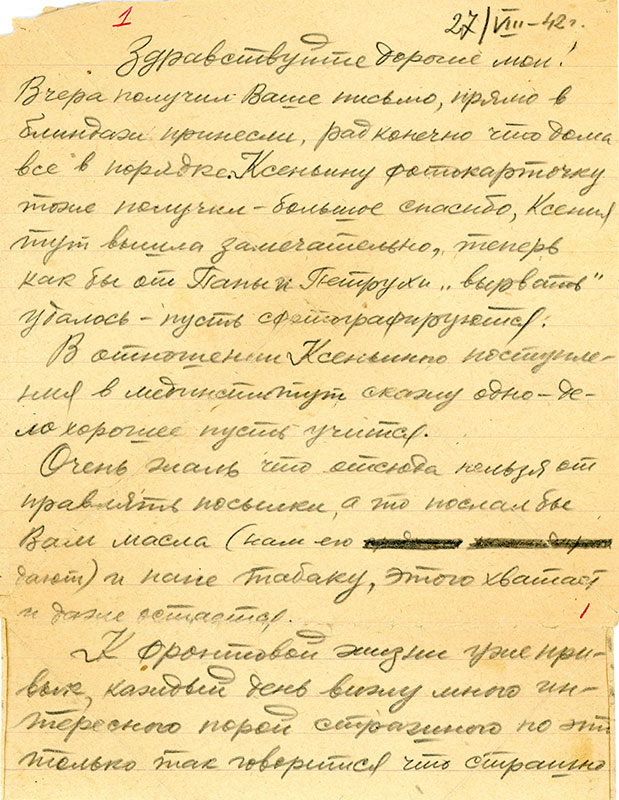 1
27/VIII-42 г.
Здравствуйте дорогие мои!
Вчера получил Ваше письмо, прямо в
блиндаж принесли, рад конечно что дома
все в порядке. Ксеньину фотокарточку
тоже получил - большое спасибо, Ксения
тут вышла замечательно, теперь
как бы от Папы и Петрухи „вырвать"
удалось - пусть сфотографируются.
В отношении Ксеньиного поступле-
ния в мединститут скажу одно - де-
ло хорошее пусть учится.
Очень жаль что отсюда нельзя от
правлять посылки, а то послал бы
Вам масла (нам его
дают) и папе табаку, этого хватает
и даже остается.
1
К фронтовой жизни уже при-
вык, каждый день вижу много ин-
тересного порой страшного но это
только так говорится что страшно